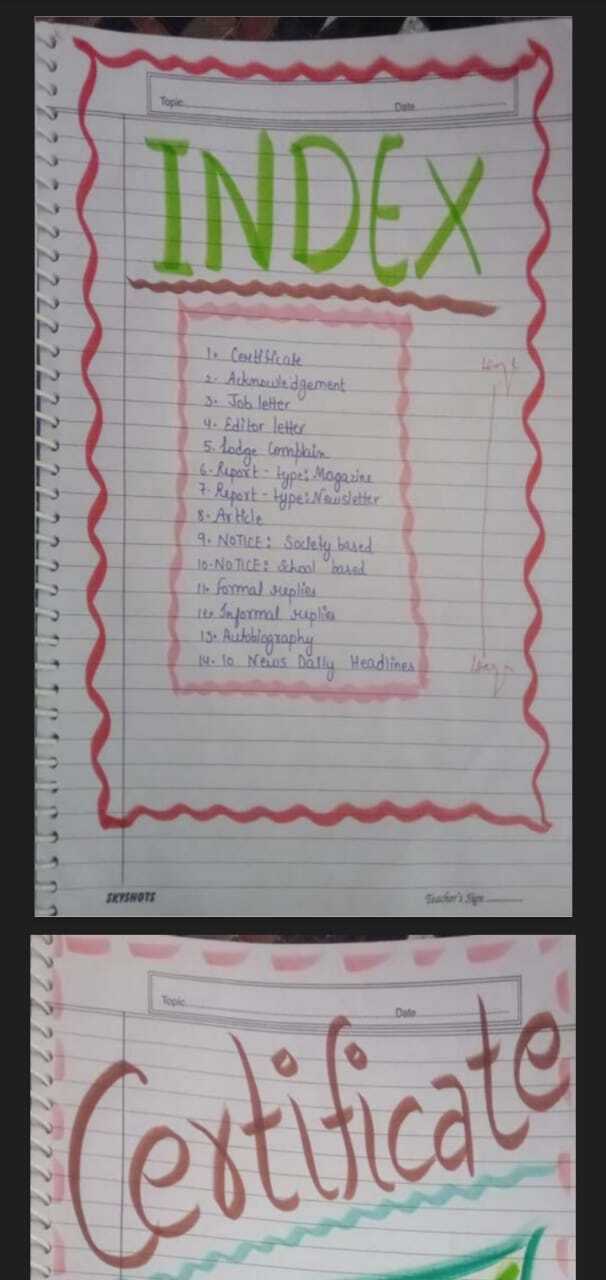 Topic Date
INDEX
1. Certificate
2. Acknowledgement
3. Job letter
4. Editor letter
5. Lodge Complain
6. Report - type: Magazine
7. Report - type: Newsletter
8. Article
9. NOTICE: Society based
10. NOTICE: School based
11. Formal replies
12. Informal replies
13. Autobiography
14. 10 News Daily Headlines
SKYSHOTS Teacher's Sign
Topic Date
Certificate